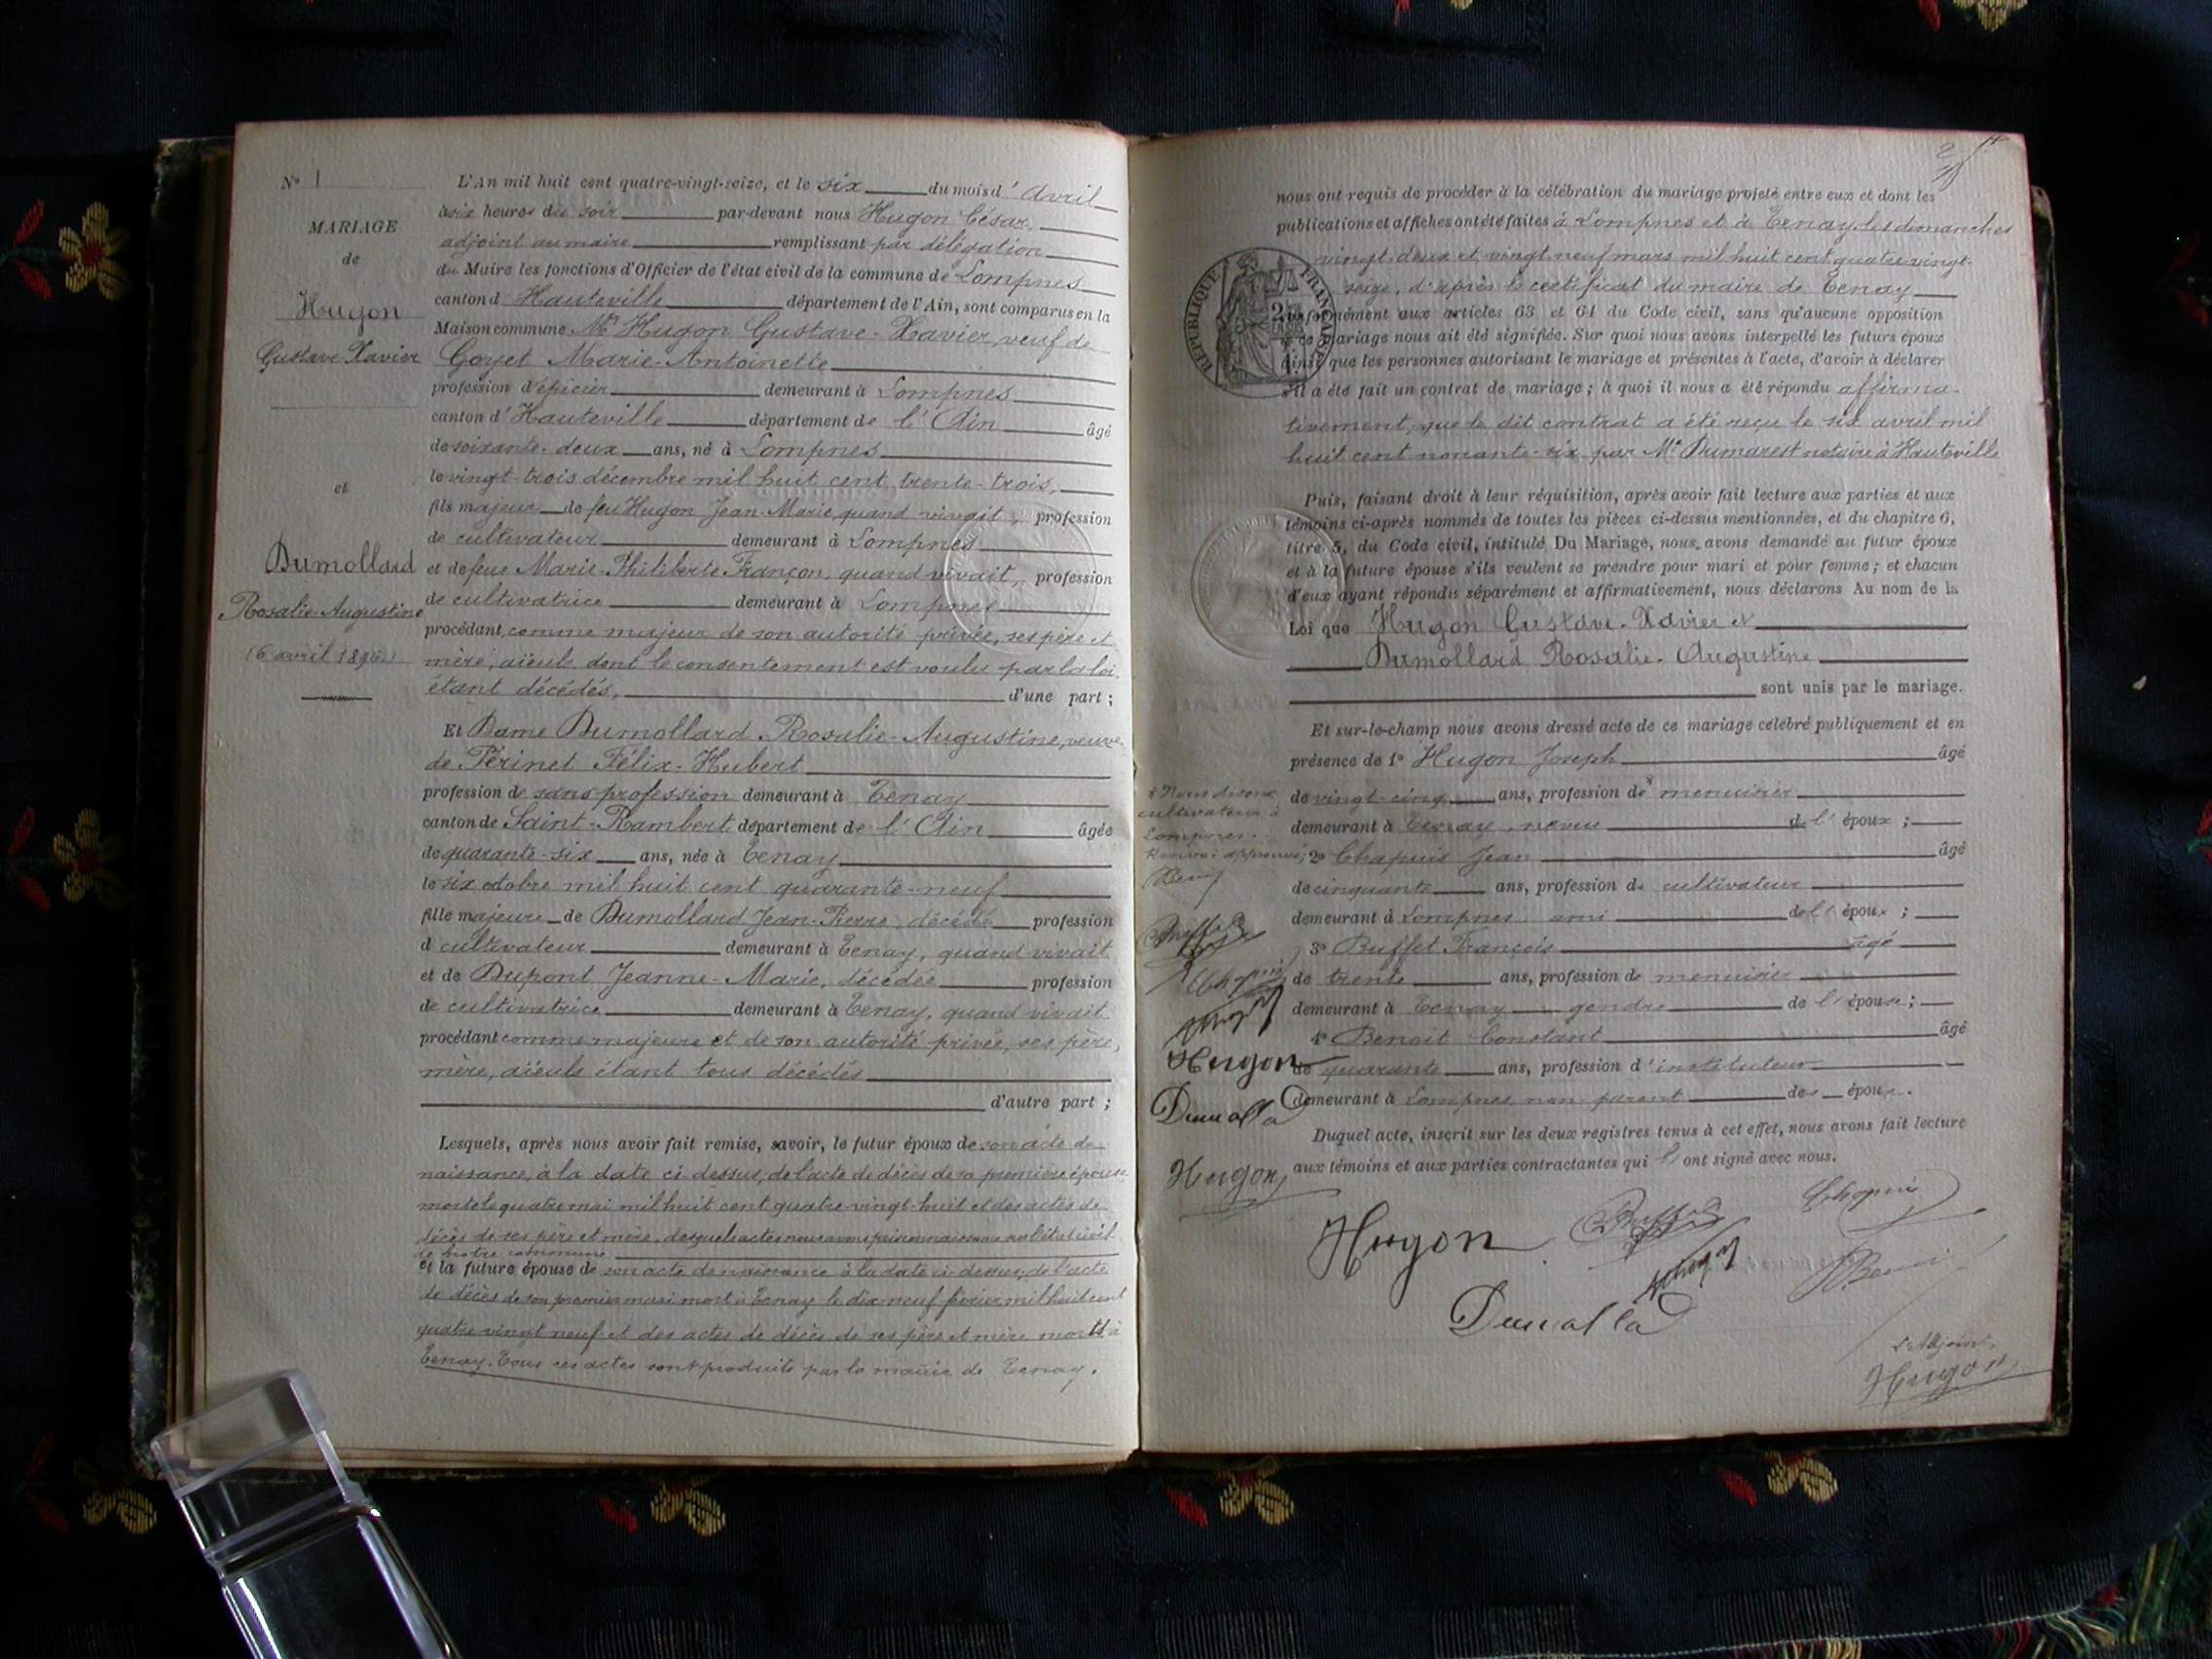 N° 1
MARIAGE
de
Hugon
Gustave Xavier
et
Dumollard
Rosalie-Augustine
(6 avril 1896)
L'An mil huit cent quatre-vingt-seize, et le six du mois d'Avril
à six heures du soir par-devant nous Hugon César,
adjoint au maire remplissant par délégation
du Maire les fonctions d'Officier de l'état civil de la commune de Lompnes
canton d'Hauteville département de l'Ain, sont comparus en la
Maison commune Mr Hugon Gustave-Xavier, veuf de
Goyet Marie-Antoinette
profession d'épicier demeurant à Lompnes
canton d'Hauteville département de l'Ain âgé
de soixante-deux ans, né à Lompnes
le vingt trois décembre mil huit cent trente-trois,
fils majeur de feu Hugon Jean-Marie, quand vivait, profession
de cultivateur demeurant à Lompnes
et de feue Marie-Philiberte Françon, quand vivait, profession
de cultivatrice demeurant à Lompnes
procédant comme majeur de son autorité privée, ses père et
mère, aïeuls dont le consentement est voulu par la loi,
étant décédés, d'une part ;
Et Dame Dumollard Rosalie-Augustine, veuve
de Périnet Félix-Hubert
profession de sans profession demeurant à Tenay
canton de Saint-Rambert département de l'Ain âgée
de quarante-six ans, née à Tenay
le six octobre mil huit cent quarante-neuf
fille majeure de Dumollard Jean-Pierre, décédé profession
d cultivateur demeurant à Tenay, quand vivait
et de Dupont Jeanne-Marie, décédée profession
de cultivatrice demeurant à Tenay, quand vivait
procédant comme majeure et de son autorité privée, ses père,
mère, aïeuls étant tous décédés
d'autre part ;
Lesquels, après nous avoir fait remise, savoir, le futur époux de son acte de
naissance, à la date ci-dessus, de l'acte de décès de sa première épouse
morte le quatre mai mil huit cent quatre-vingt-huit et des actes de
décès de ses père et mère, desquels actes nous avons pris connaissance sur l'état civil
de notre commune
et la future épouse de son acte de naissance à la date ci-dessus, de l'acte
de décès de son premier mari mort à Tenay le dix-neuf février mil huit cent
quatre vingt neuf et des actes de décès de ses père et mère morts à
Tenay. Tous ces actes sont produits par la mairie de Tenay.
2
nous ont requis de procéder à la célébration du mariage projeté entre eux et dont les
publications et affiches ont été faites à Lompnes et à Tenay les dimanches
vingt-deux et vingt-neuf mars mil huit cent quatre-vingt-
seize, d'après le certificat du maire de Tenay
RÉPUBLIQUE FRANÇAISE
conformément aux articles 63 et 64 du Code civil, sans qu'aucune opposition
à ce mariage nous ait été signifiée. Sur quoi nous avons interpellé les futurs époux
ainsi que les personnes autorisant le mariage et présentes à l'acte, d'avoir à déclarer
s'il a été fait un contrat de mariage ; à quoi il nous a été répondu affirma-
tivement, que le dit contrat a été reçu le six avril mil
huit cent nonante-six par Me Dumarest notaire à Hauteville
Puis, faisant droit à leur réquisition, après avoir fait lecture aux parties et aux
témoins ci-après nommés de toutes les pièces ci-dessus mentionnées, et du chapitre 6,
titre 5, du Code civil, intitulé Du Mariage, nous avons demandé au futur époux
et à la future épouse s'ils veulent se prendre pour mari et pour femme ; et chacun
d'eux ayant répondu séparément et affirmativement, nous déclarons Au nom de la
Loi que Hugon Gustave-Xavier et
Dumollard Rosalie-Augustine
sont unis par le mariage.
Et sur-le-champ nous avons dressé acte de ce mariage célébré publiquement et en
présence de 1° Hugon Joseph âgé
de vingt-cinq ans, profession de menuisier
demeurant à Tenay, neveu de l'époux ;
2° Chapuis Jean âgé
de cinquante ans, profession de cultivateur
demeurant à Lompnes ami de l'époux ;
3° Buffet François âgé
de trente ans, profession de menuisier
demeurant à Tenay gendre de l'épouse ;
4° Benoit Constant âgé
de quarante ans, profession d'instituteur
demeurant à Lompnes non parent des époux.
Duquel acte, inscrit sur les deux registres tenus à cet effet, nous avons fait lecture
aux témoins et aux parties contractantes qui l'ont signé avec nous.
x Nous disons
cultivateur à
Lompnes.
Renvoi approuvé
Hugon
Hugon
Hugon
Chapuis
L'Adjoint,
Hugon